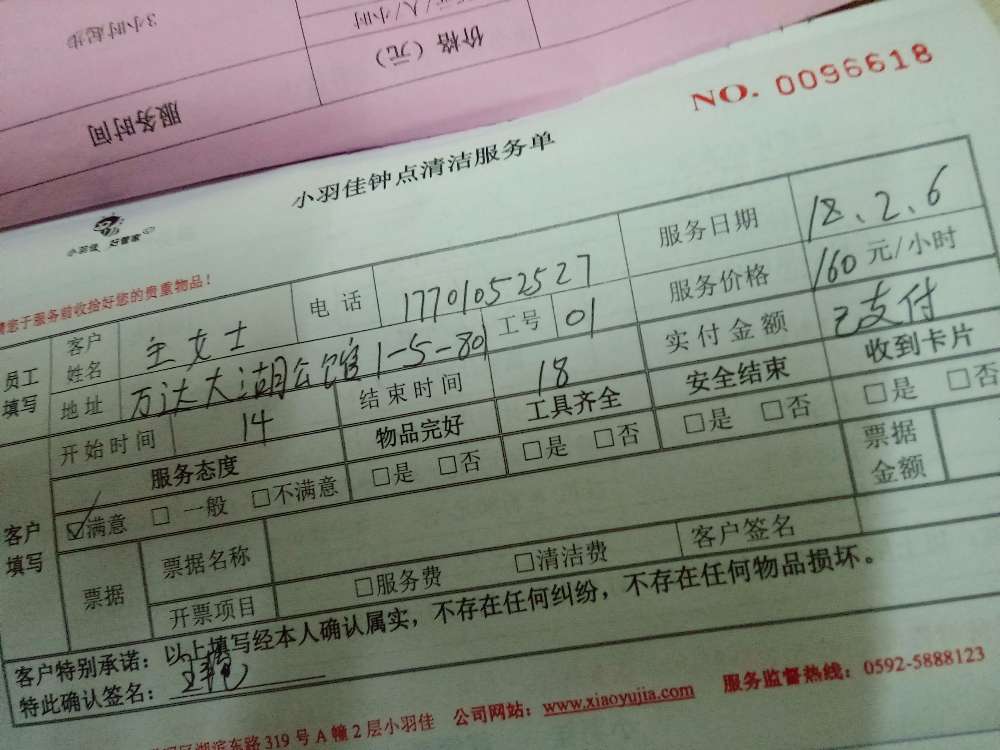 3小时起步
元/人/小时
价格（元）
服务时间
NO. 0096618
小羽佳钟点清洁服务单
小羽佳 好管家
请您于服务前收拾好您的贵重物品！
员工填写
客户姓名 王女士 电话 17701052527 服务日期 18、2、6
地址 万达大湖公馆1-5-801 工号 01 服务价格 160元/小时
开始时间 14 结束时间 18 实付金额 已支付
客户填写
服务态度 物品完好 工具齐全 安全结束 收到卡片
☑满意 □一般 □不满意 □是 □否 □是 □否 □是 □否 □是 □否
票据 票据名称 票据金额
开票项目 □服务费 □清洁费 客户签名
客户特别承诺：以上填写经本人确认属实，不存在任何纠纷，不存在任何物品损坏。
特此确认签名：
湖滨东路319号A幢2层小羽佳 公司网站：www.xiaoyujia.com 服务监督热线：0592-5888123